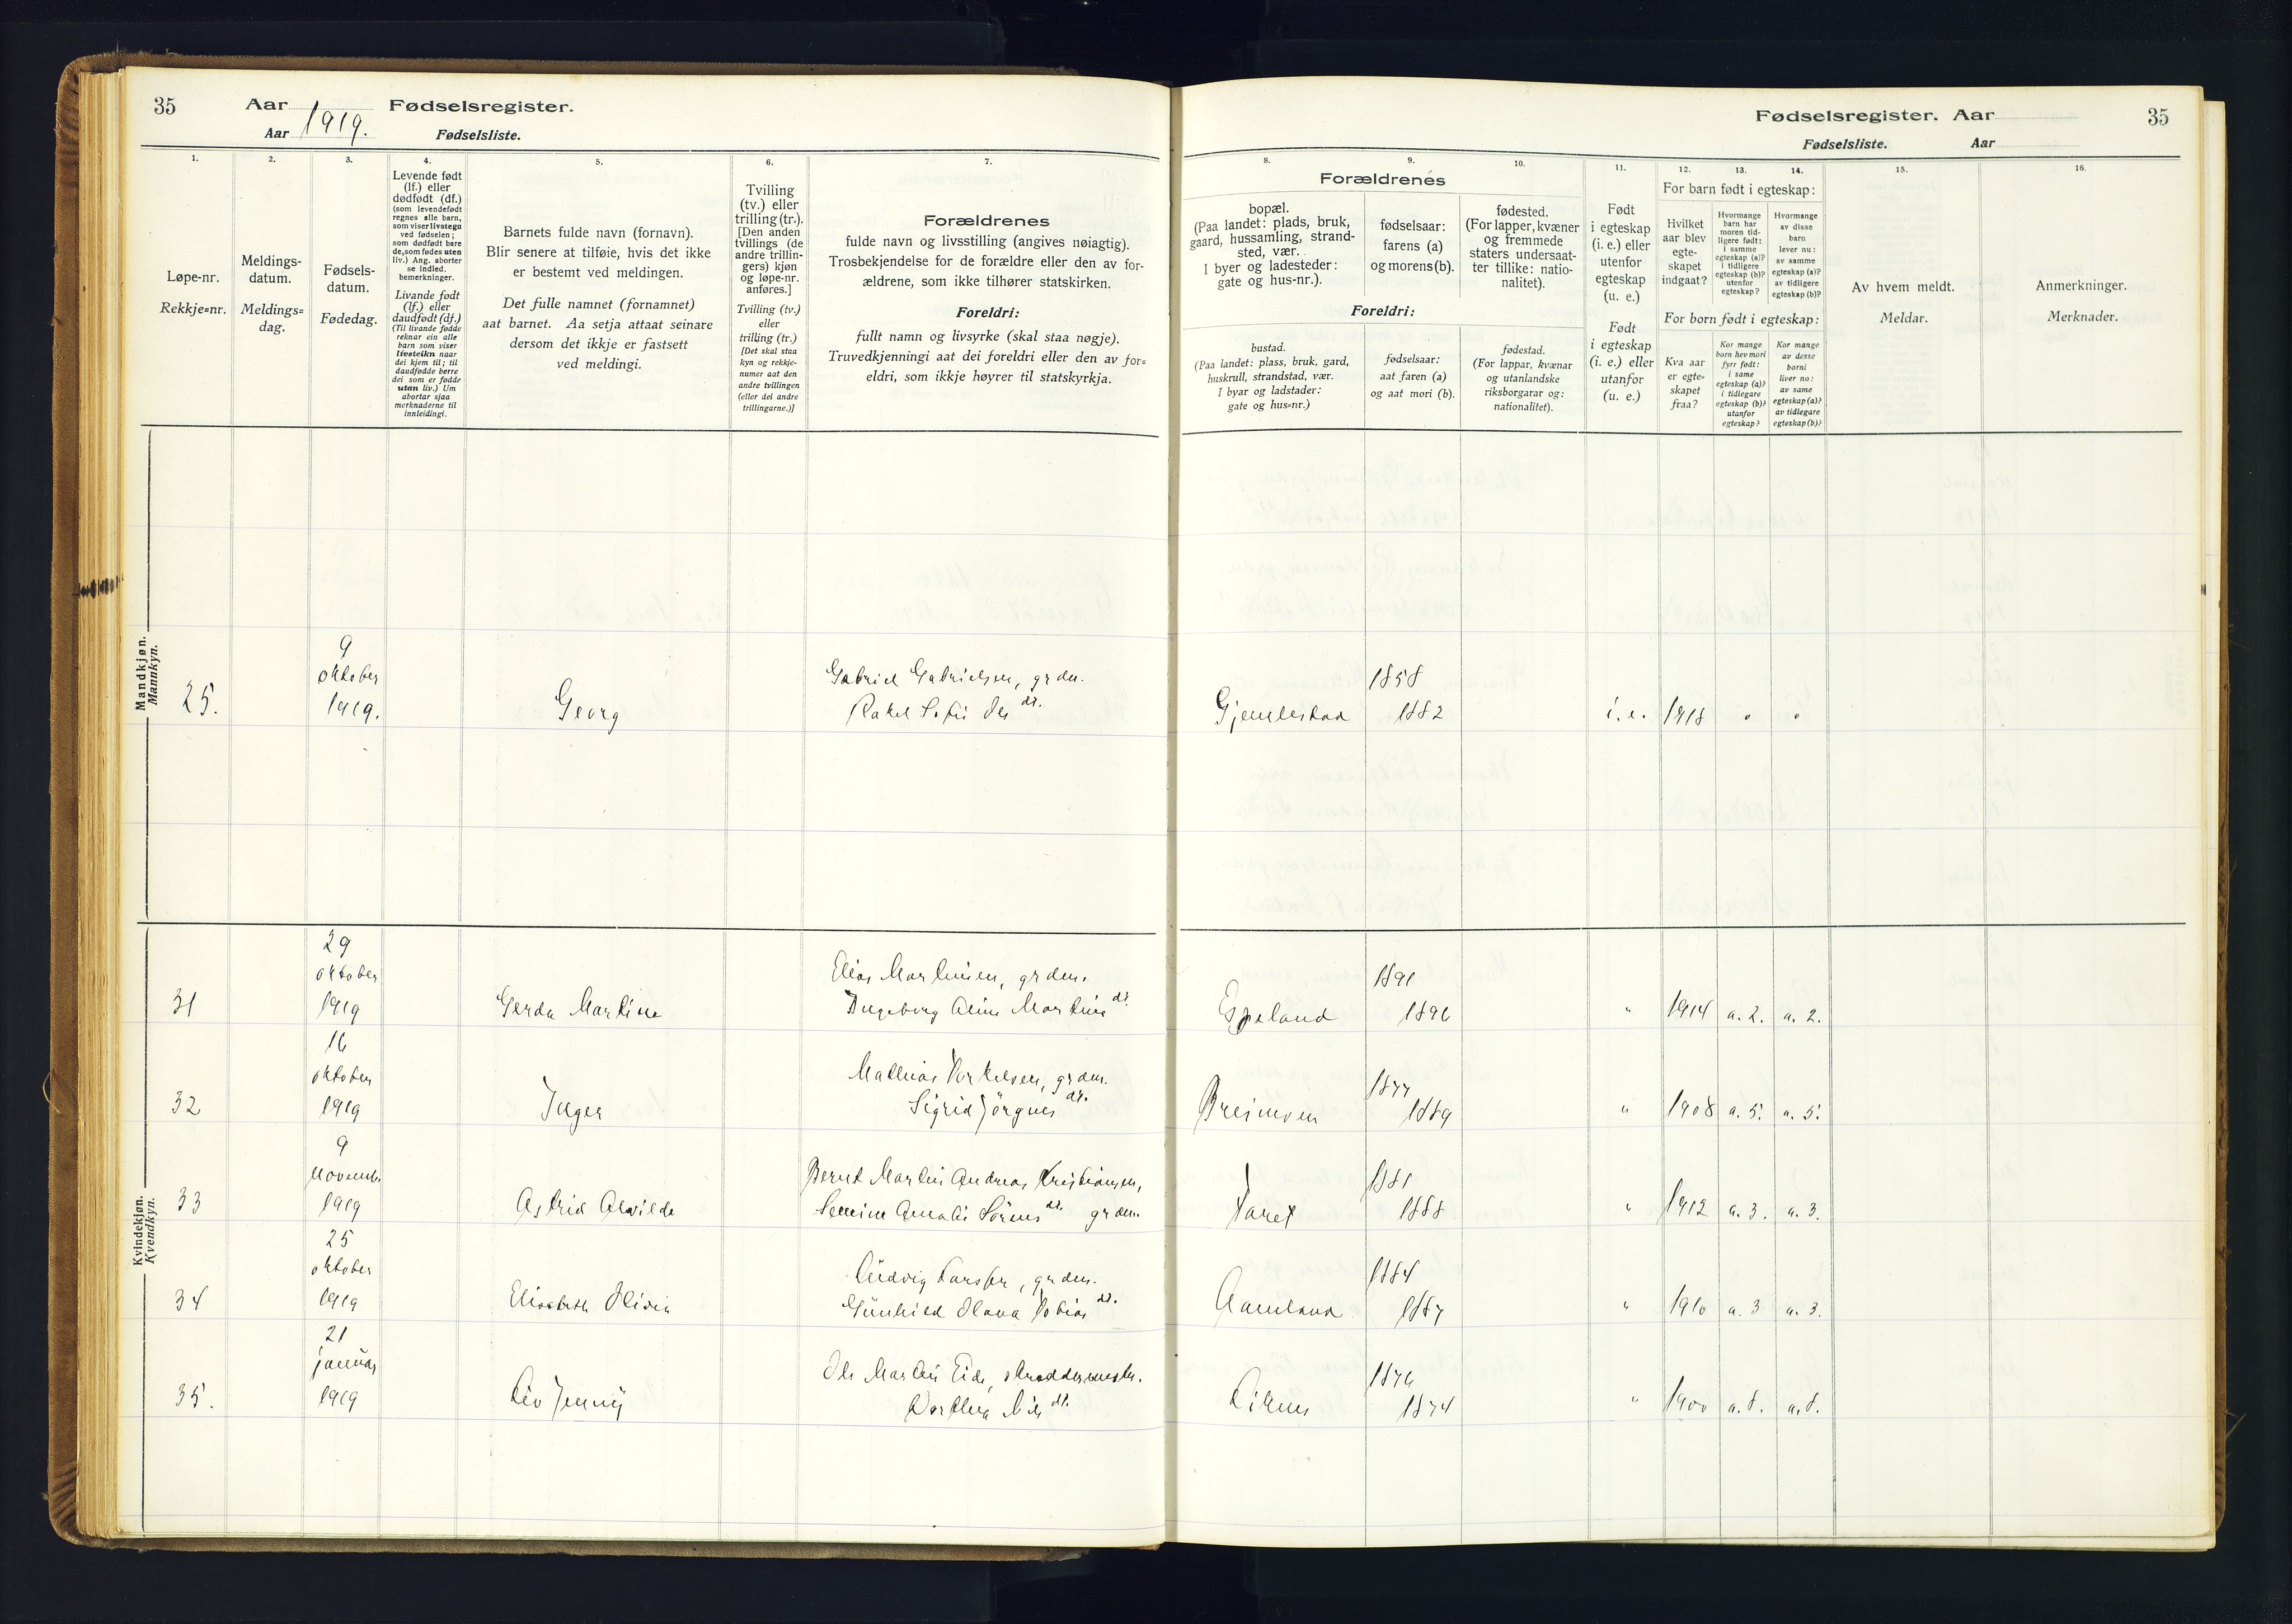 35
Aar 1919.
Fødselsregister.
Aar
Fødselsliste.
1.
Løpe-nr.
Rekkje=nr.
2.
Meldings-
datum.
Meldings=
dag.
3.
Fødsels-
datum.
Fødedag.
4.
Levende født
(lf.) eller
dødfødt (df.)
(som levendefødt
regnes alle barn,
som viser livstegn
ved fødselen;
som dødfødt bare
de, som fødes uten
liv.) Ang. aborter
se indled.
bemerkninger.
Livande født
(lf.) eller
daudfødt (df.)
(Til livande fødde
reknar ein alle
barn som viser
livsteikn naar
dei kjem til; til
daudfødde berre
dei som er fødde
utan liv.) Um
abortar sjaa
merknaderne til
innleidingi.
5.
Barnets fulde navn (fornavn).
Blir senere at tilføie, hvis det ikke
er bestemt ved meldingen.
Det fulle namnet (fornamnet)
aat barnet. Aa setja attaat seinare
dersom det ikkje er fastsett
ved meldingi.
6.
Tvilling
(tv.) eller
trilling (tr.).
[Den anden
tvillings (de
andre trillin-
gers) kjøn
og løpe-nr.
anføres.]
Tvilling (tv.)
eller
trilling (tr.)
[Det skal staa
kyn og rekkje-
numer aat den
andre tvillingen
(eller dei andre
trillingarne.)]
7.
Forældrenes
fulde navn og livsstilling (angives nøiagtig).
Trosbekjendelse for de forældre eller den av for-
ældrene, som ikke tilhører statskirken.
Foreldri:
fullt namn og livsyrke (skal staa nøgje).
Truvedkjenningi aat dei foreldri eller den av for=
eldri, som ikkje høyrer til statskyrkja.
Fødselsregister. Aar
35
Fødselsliste. Aar
8.
9.
10.
Forældrenes
bopæl.
(Paa landet: plads, bruk,
gaard, hussamling, strand-
sted, vær.
I byer og ladesteder:
gate og hus-nr.).
fødselsaar:
farens (a)
og morens (b).
fødested.
(For lapper, kvæner
og fremmede
staters undersaat-
ter tillike: natio-
nalitet).
Foreldri:
bustad.
(Paa landet: plass, bruk, gard,
huskrull, strandstad, vær.
I byar og ladstader:
gate og hus=nr.)
fødselsaar:
aat faren (a)
og aat mori (b).
fødestad.
(For lappar, kvænar
og utanlandske
riksborgarar og:
nationalitet).
11.
Født
i egteskap
(i. e.) eller
utenfor
egteskap
(u. e.)
Født
i egteskap
(i. e.) eller
utanfor
(u. e.)
12.
13.
14.
For barn født i egteskap:
Hvilket
aar blev
egte-
skapet
indgaat?
Hvormange
barn har
moren tid-
ligere født:
i samme
egteskap (a)?
i tidligere
egteskap (b)?
utenfor
egteskap?
Hvormange
av disse
barn
lever nu:
av samme
egteskap (a)?
av tidligere
egteskap (b)?
For born født i egteskap:
Kva aar
er egte=
skapet
fraa?
Kor mange
born hev mori
fyrr født:
i same
egteskap (a)?
i tidlegare
egteskap (b)?
utanfor
egteskap?
Kor mange
av desse
borni
liver no:
av same
egteskap (a)?
av tidlegare
egteskap (b)?
15.
Av hvem meldt.
Meldar.
16.
Anmerkninger.
Merknader.
Mandkjøn.
Mannkyn.
25. 9 oktober 1919. Georg
Gabriel Gabrielsen, grdm.
Rakel Sofie dr.
Gjemlestad 1858 1882 i. e. 1918
Kvindekjøn.
Kvendkyn.
31 29 oktober 1919 Gerda Martine
Elias Martinsen, grdm.
Ingeborg Aline Martins dr.
Espeland 1891 1896 " 1914 a. 2. a. 2.
32 16 oktober 1919 Inger
Mathias Torkelsen, grdm.
Sigrid Jörgns dr.
Breimoen 1877 1889 " 1908 a. 5. a. 5.
33 9 novemb. 1919 Astrid Alvilde
Bernt Martin Andreas Kristiansen,
Amalie Sörens dr. grdm.
1881 1888 " 1912 a. 3. a. 3.
34 25 oktober 1919 Elisabeth Olivia
Ludvig Larsen, grdm.
Gunhild Olava Tobias dr.
Aamland 1884 1887 " 1910 a. 3 a. 3.
35. 21 januar 1919 Liv Jenny
Ole Martin Eide, skreddermester.
Dorthea Nils dr.
Liknes 1876 1874 " 1900 a. 8. a. 8.